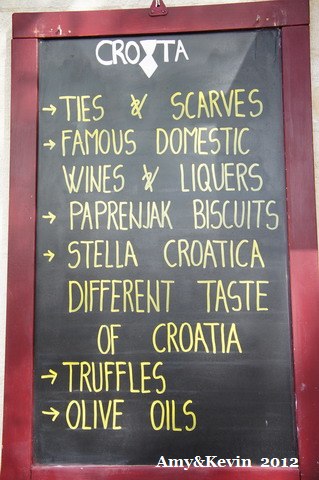 CROATA
→ TIES & SCARVES
→ FAMOUS DOMESTIC
WINES & LIQUERS
→ PAPRENJAK BISCUITS
→ STELLA CROATICA
DIFFERENT TASTE
OF CROATIA
→ TRUFFLES
→ OLIVE OILS
Amy&Kevin 2012